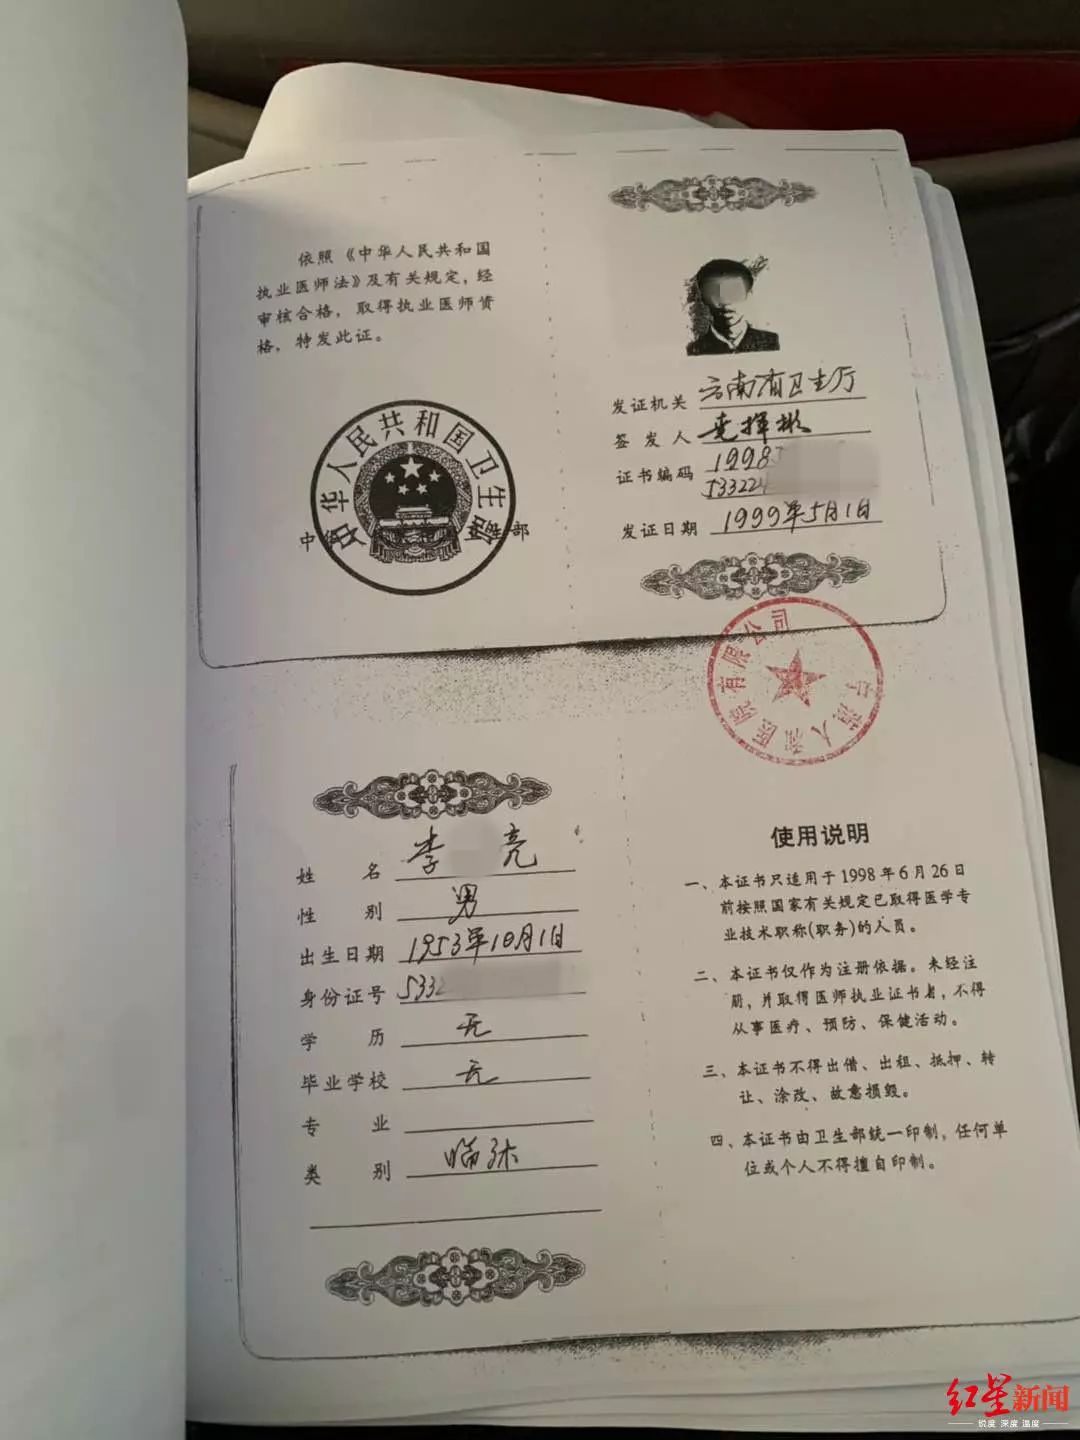 依照《中华人民共和国
执业医师法》及有关规定，经
审核合格，取得执业医师资
格，特发此证。
中华人民共和国卫生部
发证机关 云南省卫生厅
签发人
证书编码 1998
53322
发证日期 1999年5月1日
有限公司
姓名 李 亮
性别 男
出生日期 1953年10月1日
身份证号 533
学历 无
毕业学校 无
专业
类别 临床
使用说明
一、本证书只适用于1998年6月26日
前按照国家有关规定已取得医学专
业技术职称(职务)的人员。
二、本证书仅作为注册依据。未经注
册，并取得医师执业证书者，不得
从事医疗、预防、保健活动。
三、本证书不得出借、出租、抵押、转
让、涂改、故意损毁。
四、本证书由卫生部统一印制，任何单
位或个人不得擅自印制。
红星新闻
锐度 深度 温度